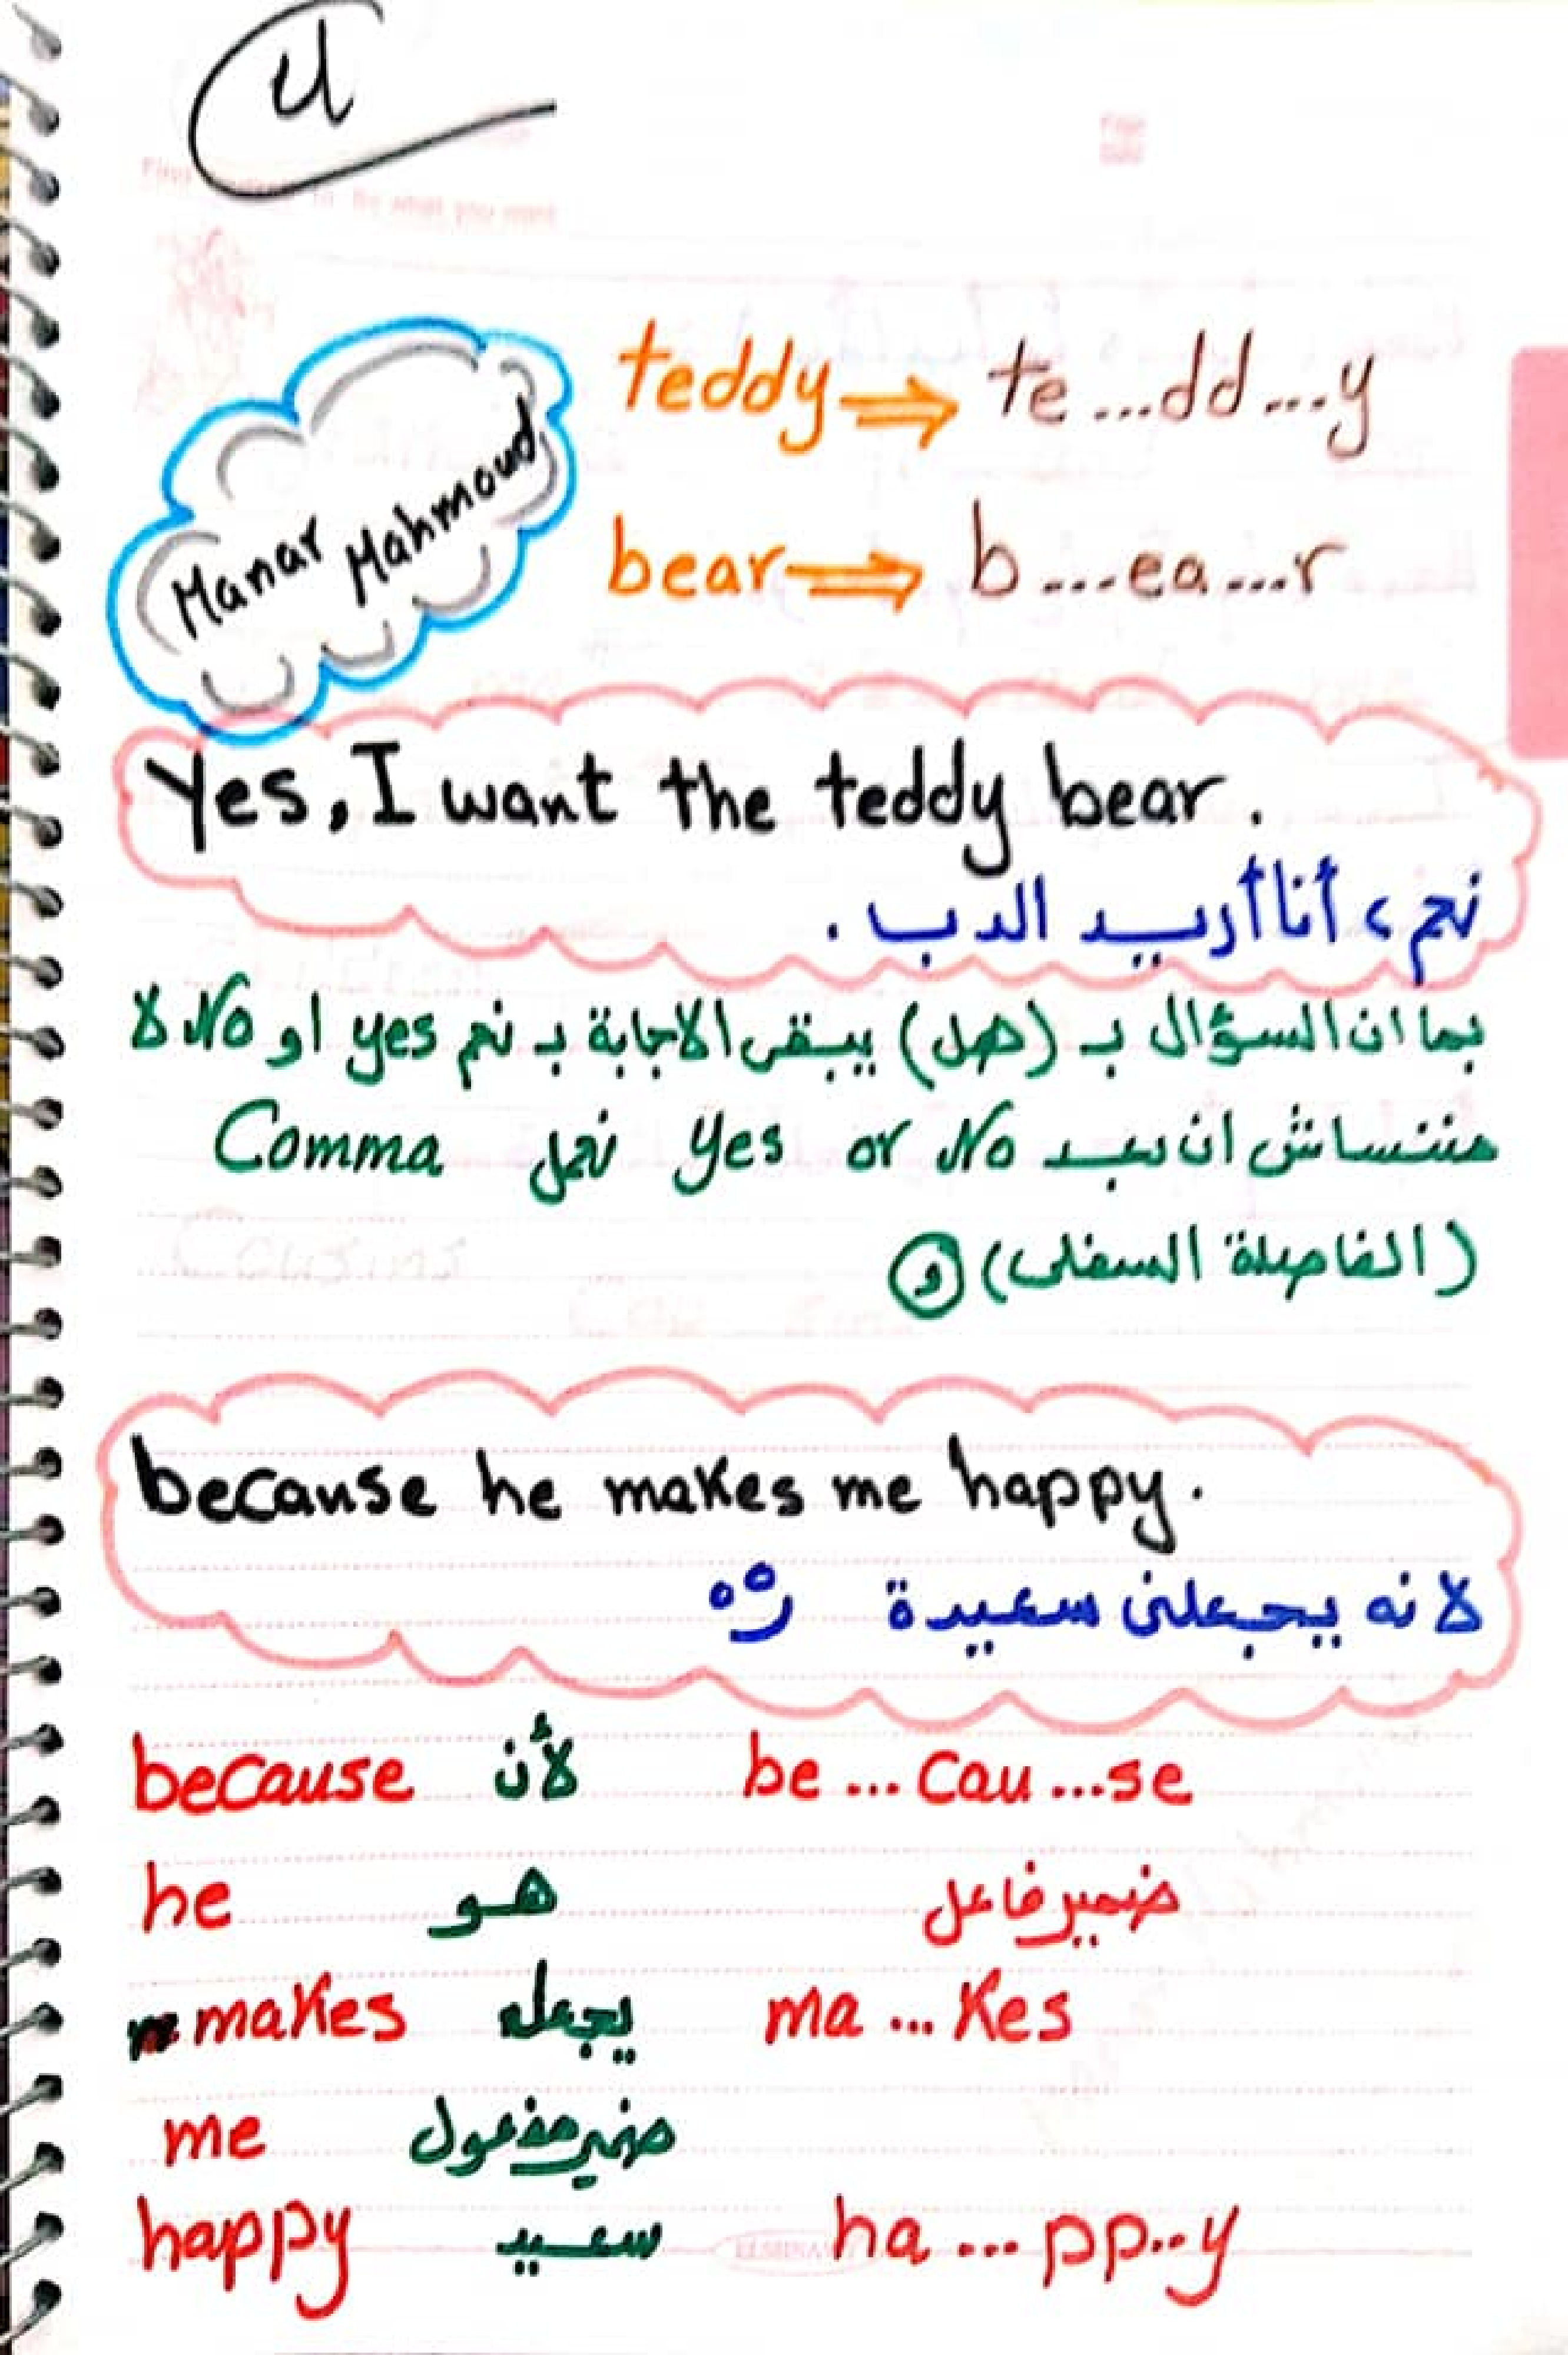 U
Do what you want
Manar Mahmoud
teddy ⇒ te...dd...y
bear ⇒ b...ea...r
Yes, I want the teddy bear.
نعم، أنا أريد الدب.
بما ان السؤال بـ (هل) يبقى الاجابة بـ نعم yes او No لا
متنساش ان بعد Yes or No نعمل Comma
(الفاصلة السفلى) و
because he makes me happy.
لانه يجعلنى سعيدة
because لأن be...cau...se
he هو ضمير فاعل
makes يجعل ma...kes
me ضمير مفعول
happy سعيد ha...pp..y